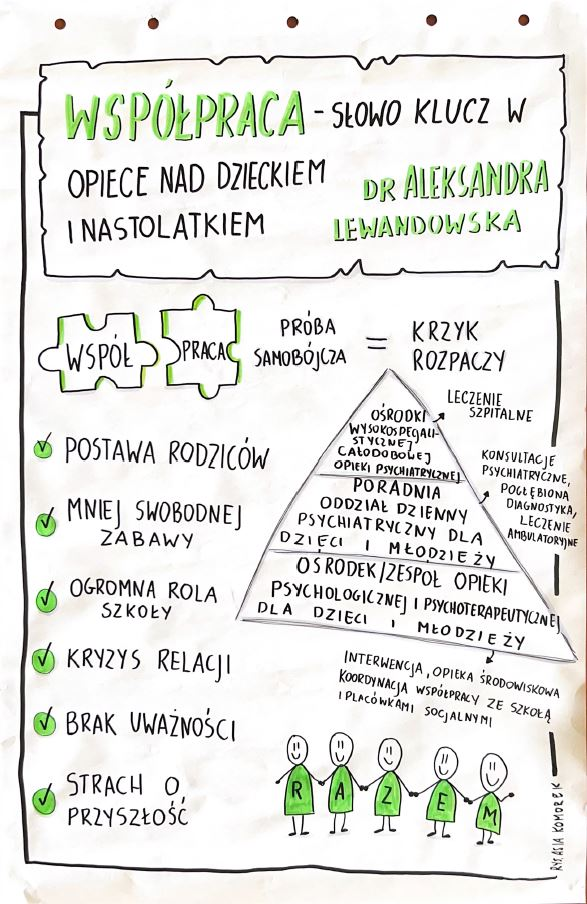 WSPÓŁPRACA - SŁOWO KLUCZ W
OPIECE NAD DZIECKIEM
I NASTOLATKIEM
DR ALEKSANDRA
LEWANDOWSKA
WSPÓŁ PRACA
PRÓBA
SAMOBÓJCZA
=
KRZYK
ROZPACZY
POSTAWA RODZICÓW
MNIEJ SWOBODNEJ
ZABAWY
OGROMNA ROLA
SZKOŁY
KRYZYS RELACJI
BRAK UWAŻNOŚCI
STRACH O
PRZYSZŁOŚĆ
OŚRODKI
WYSOKOSPECJALI-
STYCZNEJ
CAŁODOBOWEJ
OPIEKI PSYCHIATRYCZNEJ
LECZENIE
SZPITALNE
PORADNIA
ODDZIAŁ DZIENNY
PSYCHIATRYCZNY DLA
DZIECI I MŁODZIEŻY
KONSULTACJE
PSYCHIATRYCZNE,
POGŁĘBIONA
DIAGNOSTYKA,
LECZENIE
AMBULATORYJNE
OŚRODEK/ZESPÓŁ OPIEKI
PSYCHOLOGICZNEJ I PSYCHOTERAPEUTYCZNEJ
DLA DZIECI I MŁODZIEŻY
INTERWENCJA, OPIEKA ŚRODOWISKOWA
KOORDYNACJA WSPÓŁPRACY ZE SZKOŁĄ
I PLACÓWKAMI SOCJALNYMI
R A Z E M
RYS. ASIA KOMOREK